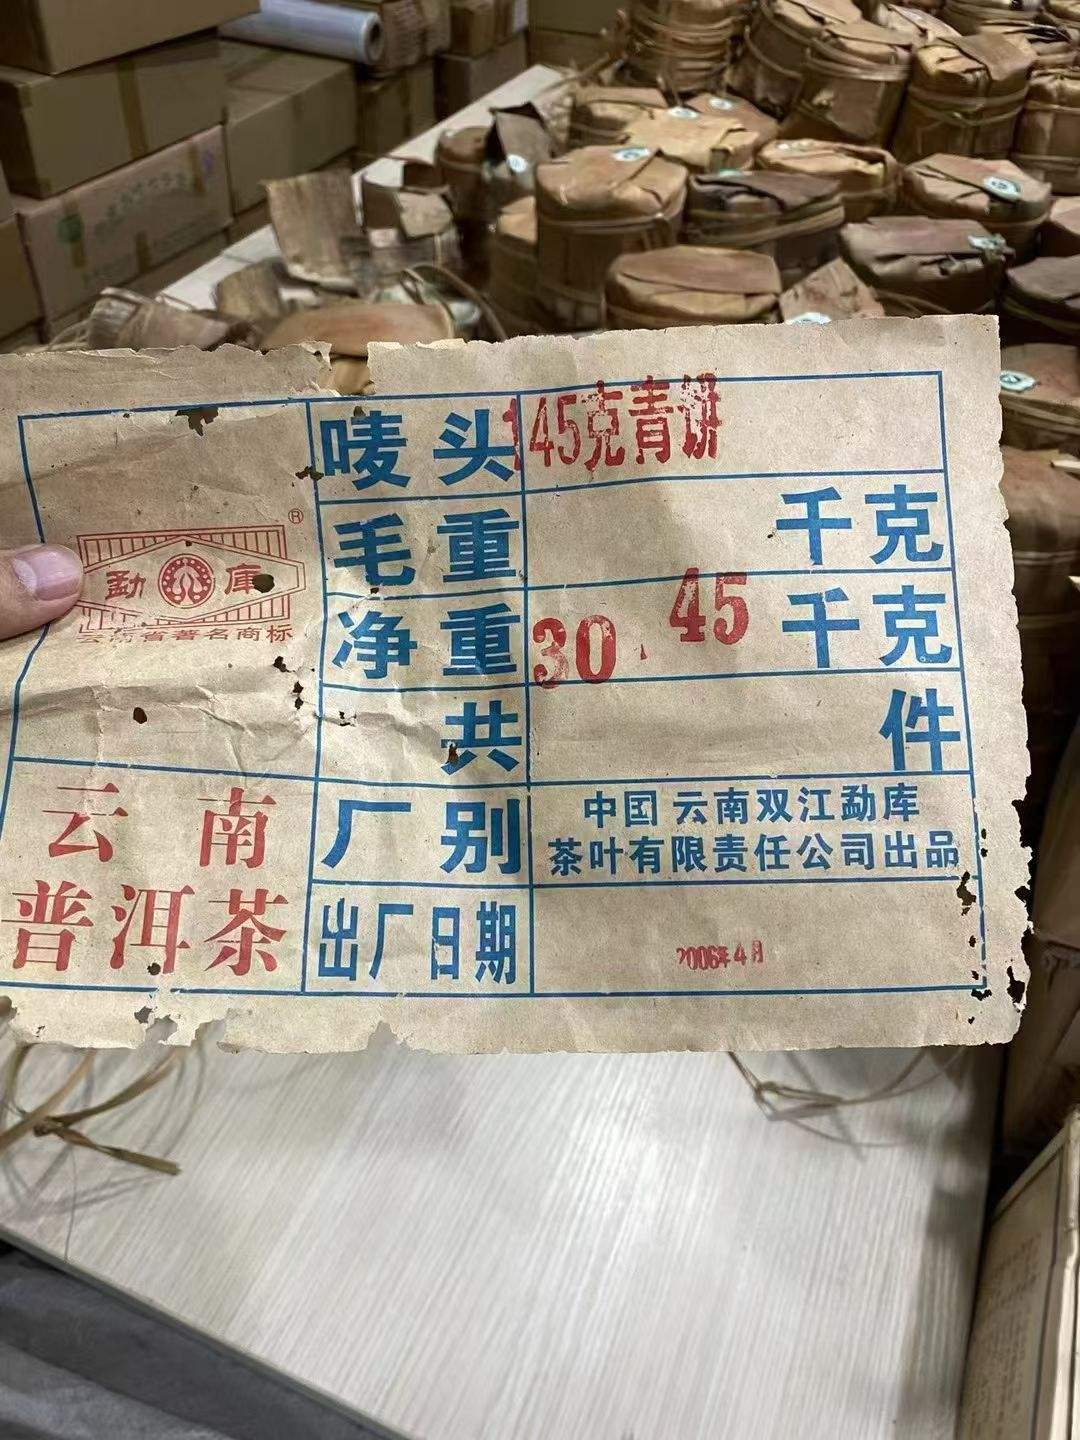 唛头 145克青饼
毛重 千克
净重 30.45 千克
共 件
厂别 中国云南双江勐库
茶叶有限责任公司出品
出厂日期 2006年4月
勐库
®
云南省著名商标
云南
普洱茶